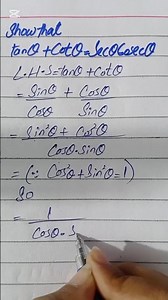 Show that
tanθ + Cotθ = Secθ Cosecθ
L.H.S = tanθ + Cotθ
= Sinθ/Cosθ + Cosθ/Sinθ
= Sin²θ + Cos²θ / Cosθ · Sinθ
= (∵ Cos²θ + Sin²θ = 1)
So
= 1 / Cosθ · S